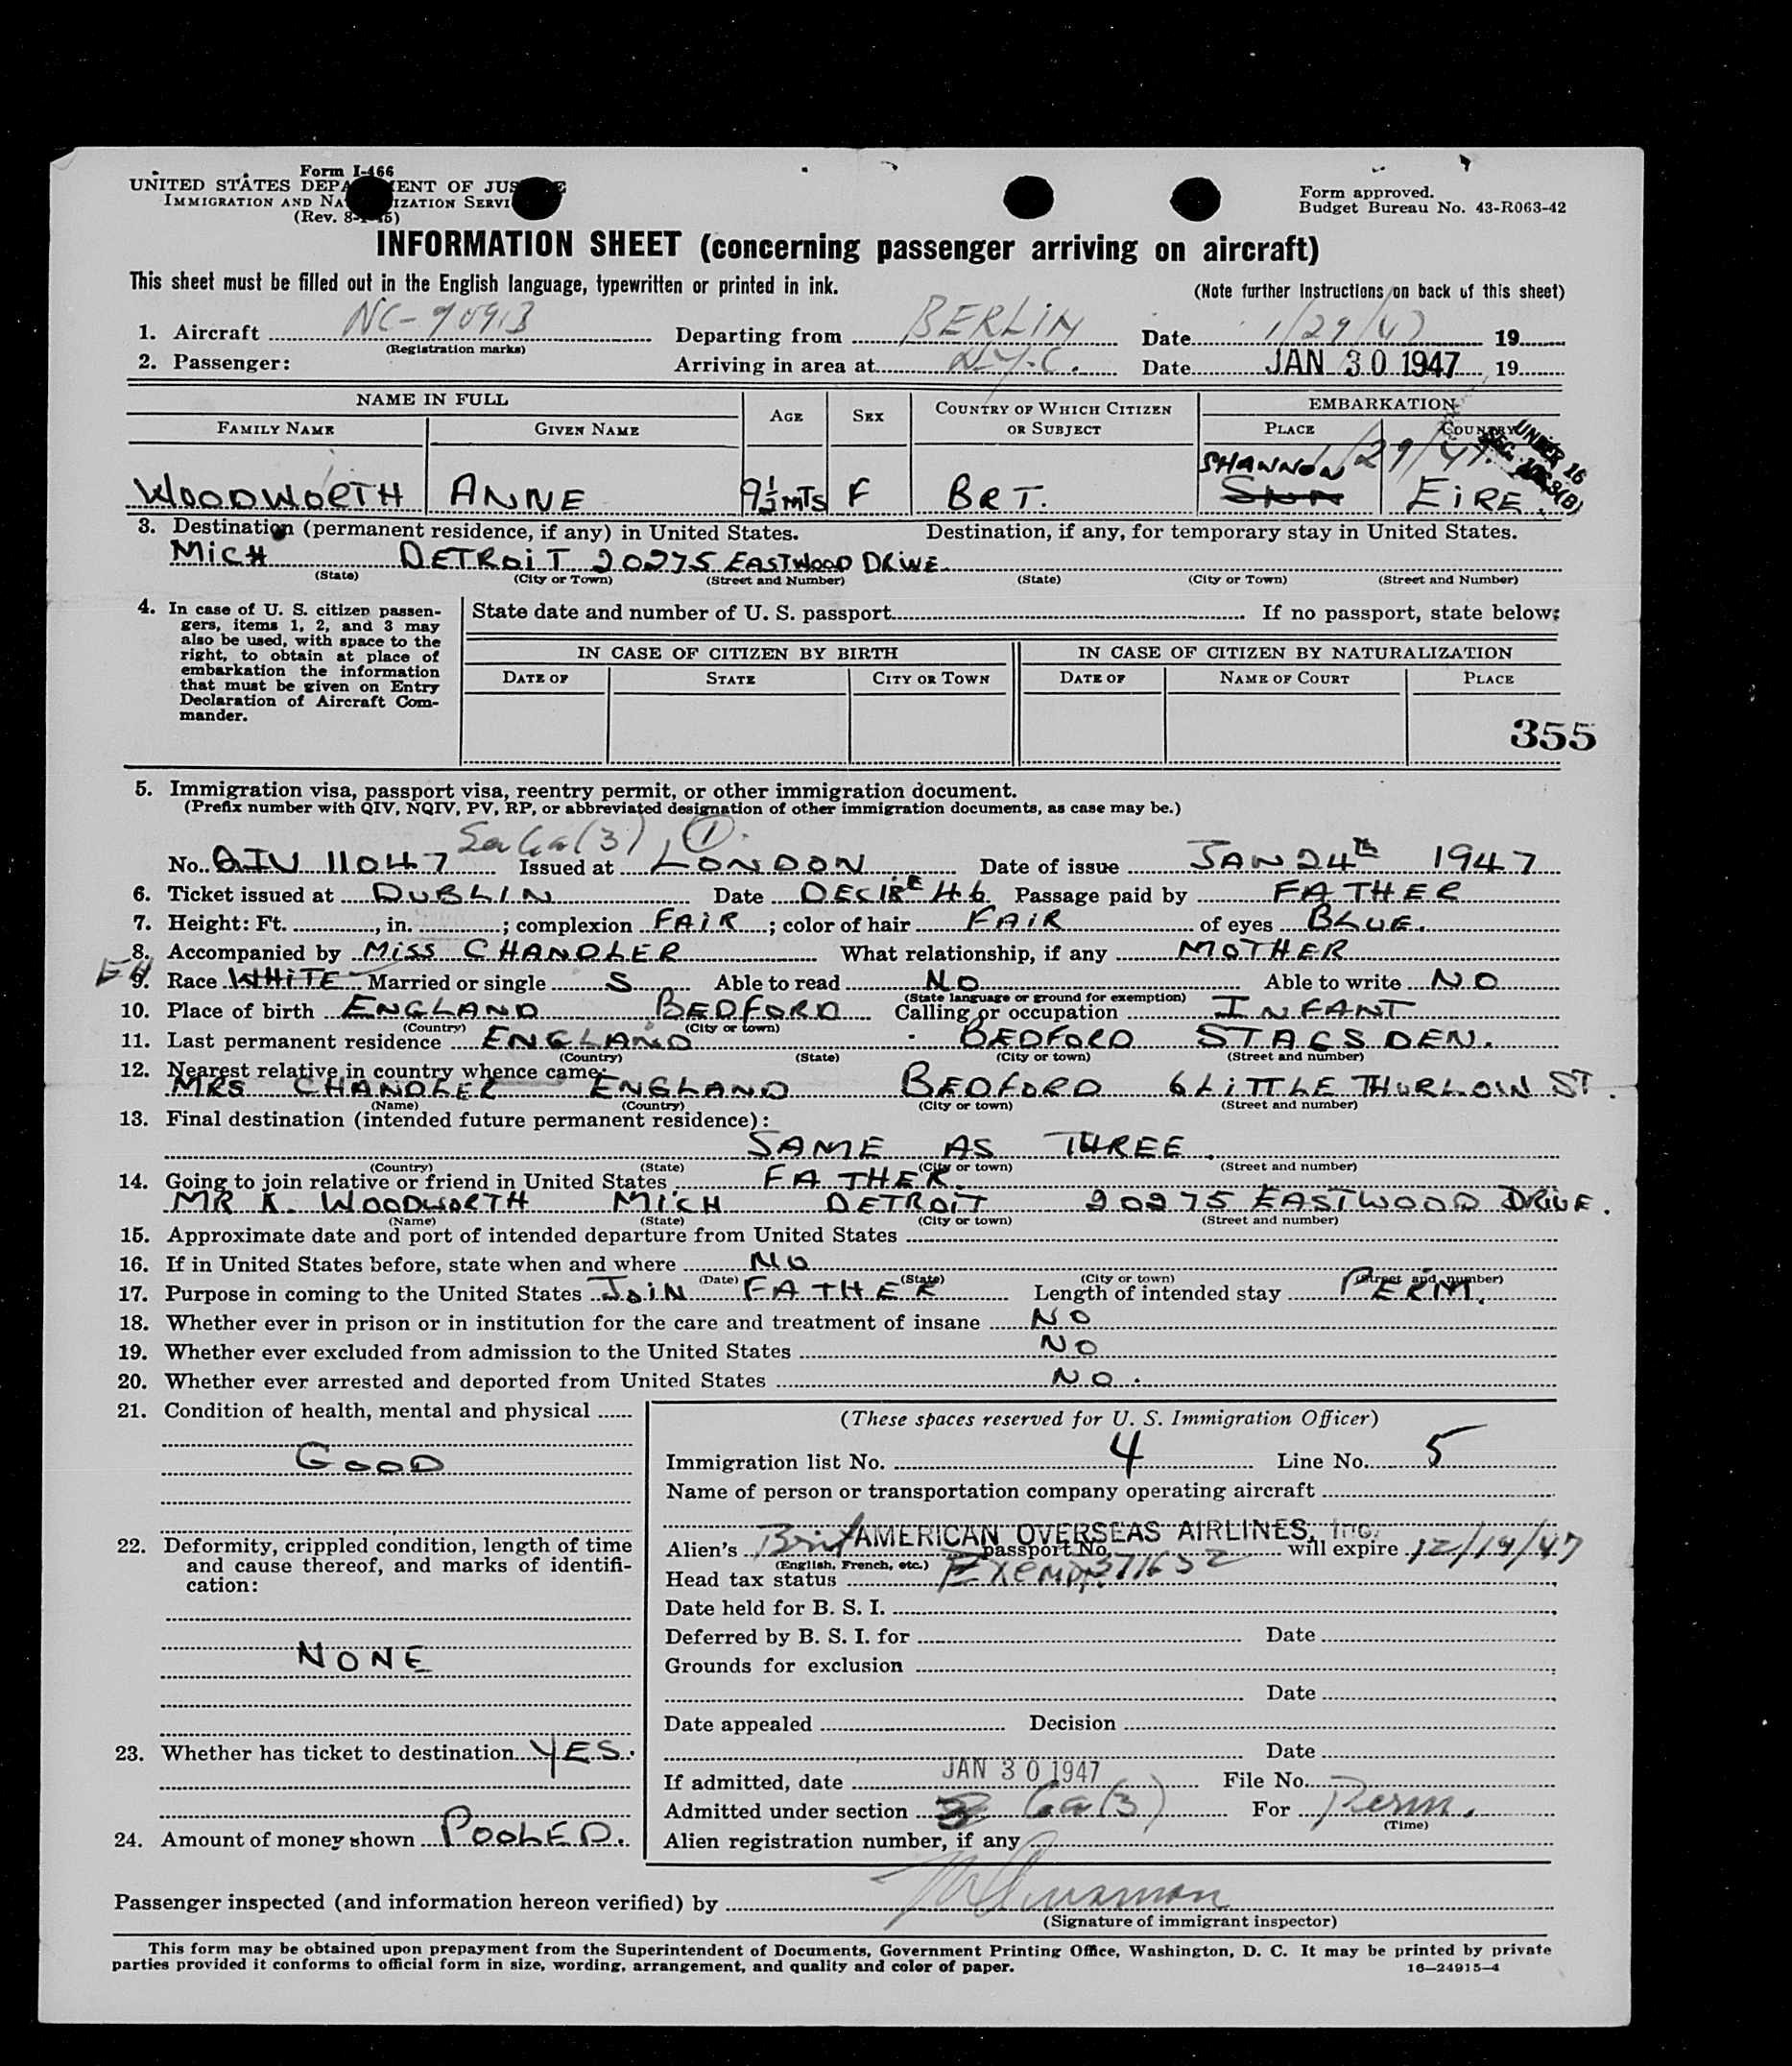 Form I-466
UNITED STATES DEPA ENT OF JUS E
IMMIGRATION AND NA IZATION SERVI
(Rev. 8- 45)
Form approved.
Budget Bureau No. 43-R063-42
INFORMATION SHEET (concerning passenger arriving on aircraft)
This sheet must be filled out in the English language, typewritten or printed in ink.
(Note further instructions on back of this sheet)
1. Aircraft NC-90913 Departing from BERLIN Date 1/29/47 19
(Registration marks)
2. Passenger: Arriving in area at N.Y.C. Date JAN 30 1947 19
NAME IN FULL AGE SEX COUNTRY OF WHICH CITIZEN OR SUBJECT EMBARKATION
FAMILY NAME GIVEN NAME PLACE COUNTRY
1/29/47 UNDER 16
SHANNON
WOODWORTH ANNE 9½ MTS F BRT. SNN EIRE.
3. Destination (permanent residence, if any) in United States. Destination, if any, for temporary stay in United States.
MICH DETROIT 20275 EASTWOOD DRIVE
(State) (City or Town) (Street and Number) (State) (City or Town) (Street and Number)
4. In case of U. S. citizen passen-
gers, items 1, 2, and 3 may
also be used, with space to the
right, to obtain at place of
embarkation the information
that must be given on Entry
Declaration of Aircraft Com-
mander.
State date and number of U. S. passport If no passport, state below:
IN CASE OF CITIZEN BY BIRTH IN CASE OF CITIZEN BY NATURALIZATION
DATE OF STATE CITY OR TOWN DATE OF NAME OF COURT PLACE
355
5. Immigration visa, passport visa, reentry permit, or other immigration document.
(Prefix number with QIV, NQIV, PV, RP, or abbreviated designation of other immigration documents, as case may be.)
6a(3) 1
No. QIV 11047 Issued at LONDON Date of issue JAN 24th 1947
6. Ticket issued at DUBLIN Date DEC 18E 46 Passage paid by FATHER
7. Height: Ft. , in. ; complexion FAIR ; color of hair FAIR of eyes BLUE.
8. Accompanied by MISS CHANDLER What relationship, if any MOTHER
9. Race WHITE Married or single S Able to read NO Able to write NO
(State language or ground for exemption)
10. Place of birth ENGLAND BEDFORD Calling or occupation INFANT
(Country) (City or town)
11. Last permanent residence ENGLAND BEDFORD STAGSDEN.
(Country) (State) (City or town) (Street and number)
12. Nearest relative in country whence came:
MRS CHANDLER ENGLAND BEDFORD 6 LITTLE THURLOW ST.
(Name) (Country) (City or town) (Street and number)
13. Final destination (intended future permanent residence):
SAME AS THREE.
(Country) (State) (City or town) (Street and number)
14. Going to join relative or friend in United States FATHER.
MR K. WOODWORTH MICH DETROIT 20275 EASTWOOD DRIVE.
(Name) (State) (City or town) (Street and number)
15. Approximate date and port of intended departure from United States
16. If in United States before, state when and where NO
(Date) (State) (City or town) (Street and number)
17. Purpose in coming to the United States JOIN FATHER Length of intended stay PERM.
18. Whether ever in prison or in institution for the care and treatment of insane NO
19. Whether ever excluded from admission to the United States NO
20. Whether ever arrested and deported from United States NO.
21. Condition of health, mental and physical
GOOD
22. Deformity, crippled condition, length of time
and cause thereof, and marks of identifi-
cation:
NONE
23. Whether has ticket to destination YES.
24. Amount of money shown POOLED.
(These spaces reserved for U. S. Immigration Officer)
Immigration list No. 4 Line No. 5
Name of person or transportation company operating aircraft
AMERICAN OVERSEAS AIRLINES, Inc.
Alien's Brit passport No. 371652 will expire 12/19/47
(English, French, etc.)
Head tax status Exempt
Date held for B. S. I.
Deferred by B. S. I. for Date
Grounds for exclusion
Date
Date appealed Decision
Date
If admitted, date JAN 30 1947 File No.
Admitted under section 6a(3) For Perm.
(Time)
Alien registration number, if any
Passenger inspected (and information hereon verified) by
(Signature of immigrant inspector)
This form may be obtained upon prepayment from the Superintendent of Documents, Government Printing Office, Washington, D. C. It may be printed by private
parties provided it conforms to official form in size, wording, arrangement, and quality and color of paper.
16—24915-4